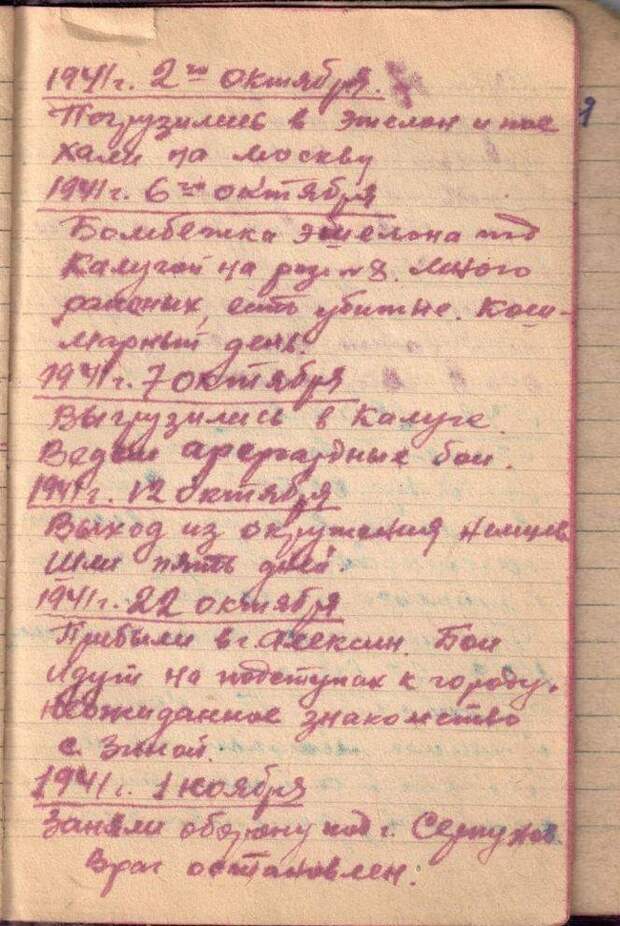 1941г. 2го октября.
Погрузились в эшелон и пое
хали на Москву
1941г. 6го октября
Бомбежка эшелона под
Калугой на раз. №8. Много
раненых, есть убитые. Кош-
марный день.
1941г. 7 октября
Выгрузились в Калуге.
Ведем арергардные бои.
1941г. 12 октября
Выход из окружения немцев.
Шли пять дней.
1941г. 22 октября
Прибыли в г. Алексин. Бои
идут на подступах к городу.
Неожиданное знакомство
с Зиной.
1941г. 1 ноября
Заняли оборону под г. Серпухов.
Враг остановлен.